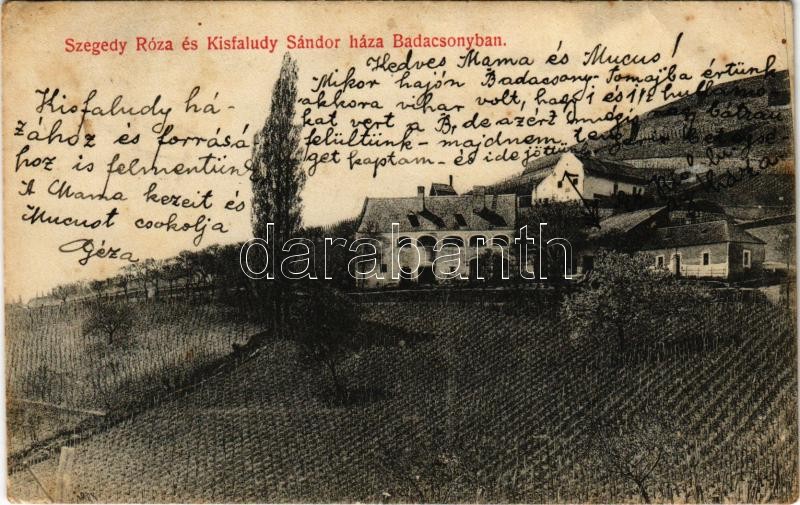 Szegedy Róza és Kisfaludy Sándor háza Badacsonyban.
Kedves Mama és Mucus!
Mikor hajón Badacsony-Tomajba értünk
akkora vihar volt, hogy
kat vert a B, de azért
felültünk - majdnem
get kaptam - és ide jöttü
Kisfaludy há-
zához és forrásá
hoz is felmentünk
A Mama kezeit és
Mucust csokolja
Géza
darabanth